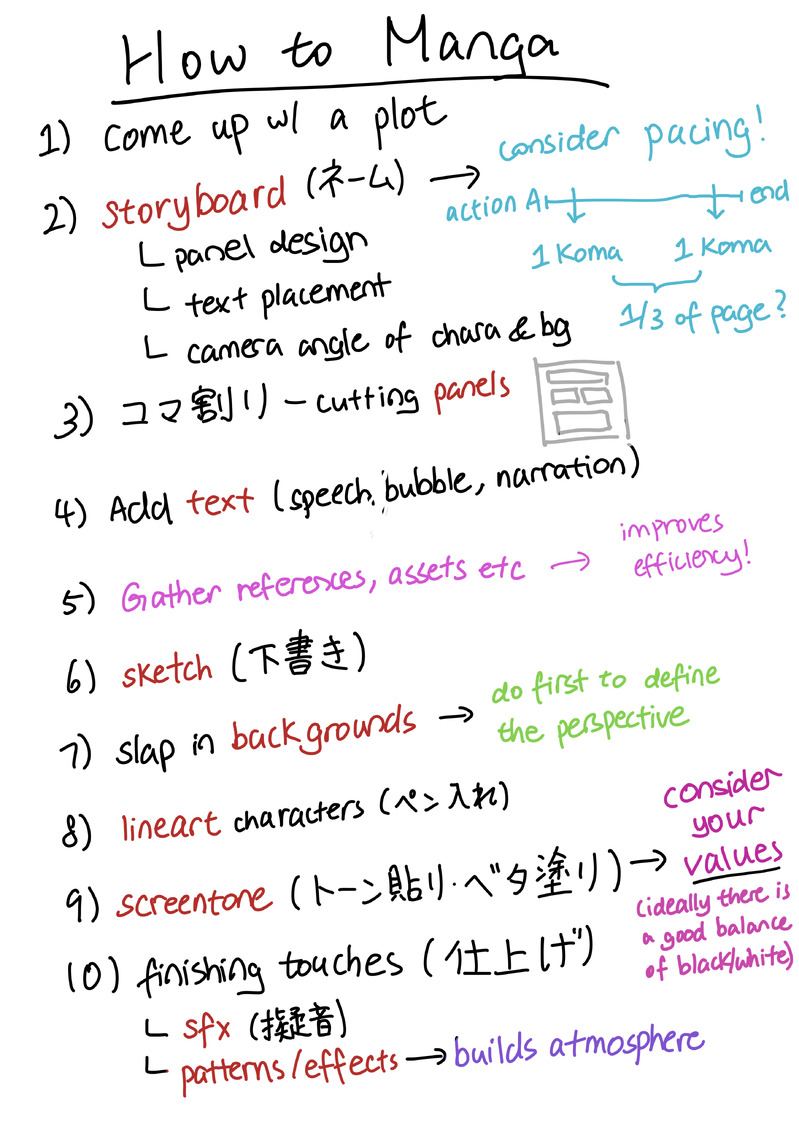 How to Manga
1) Come up w/ a plot
2) Storyboard (ネーム) → consider pacing!
action A end
1 Koma 1 Koma
1/3 of page?
panel design
text placement
camera angle of chara & bg
3) コマ割り - cutting panels
4) Add text (speech bubble, narration)
5) Gather references, assets etc → improves
efficiency!
6) sketch (下書き)
7) slap in backgrounds → do first to define
the perspective
8) lineart characters (ペン入れ)
9) screentone (トーン貼り・ベタ塗り) → consider
your
values
(ideally there is
a good balance
of black/white)
10) finishing touches (仕上げ)
sfx (擬音)
patterns/effects → builds atmosphere